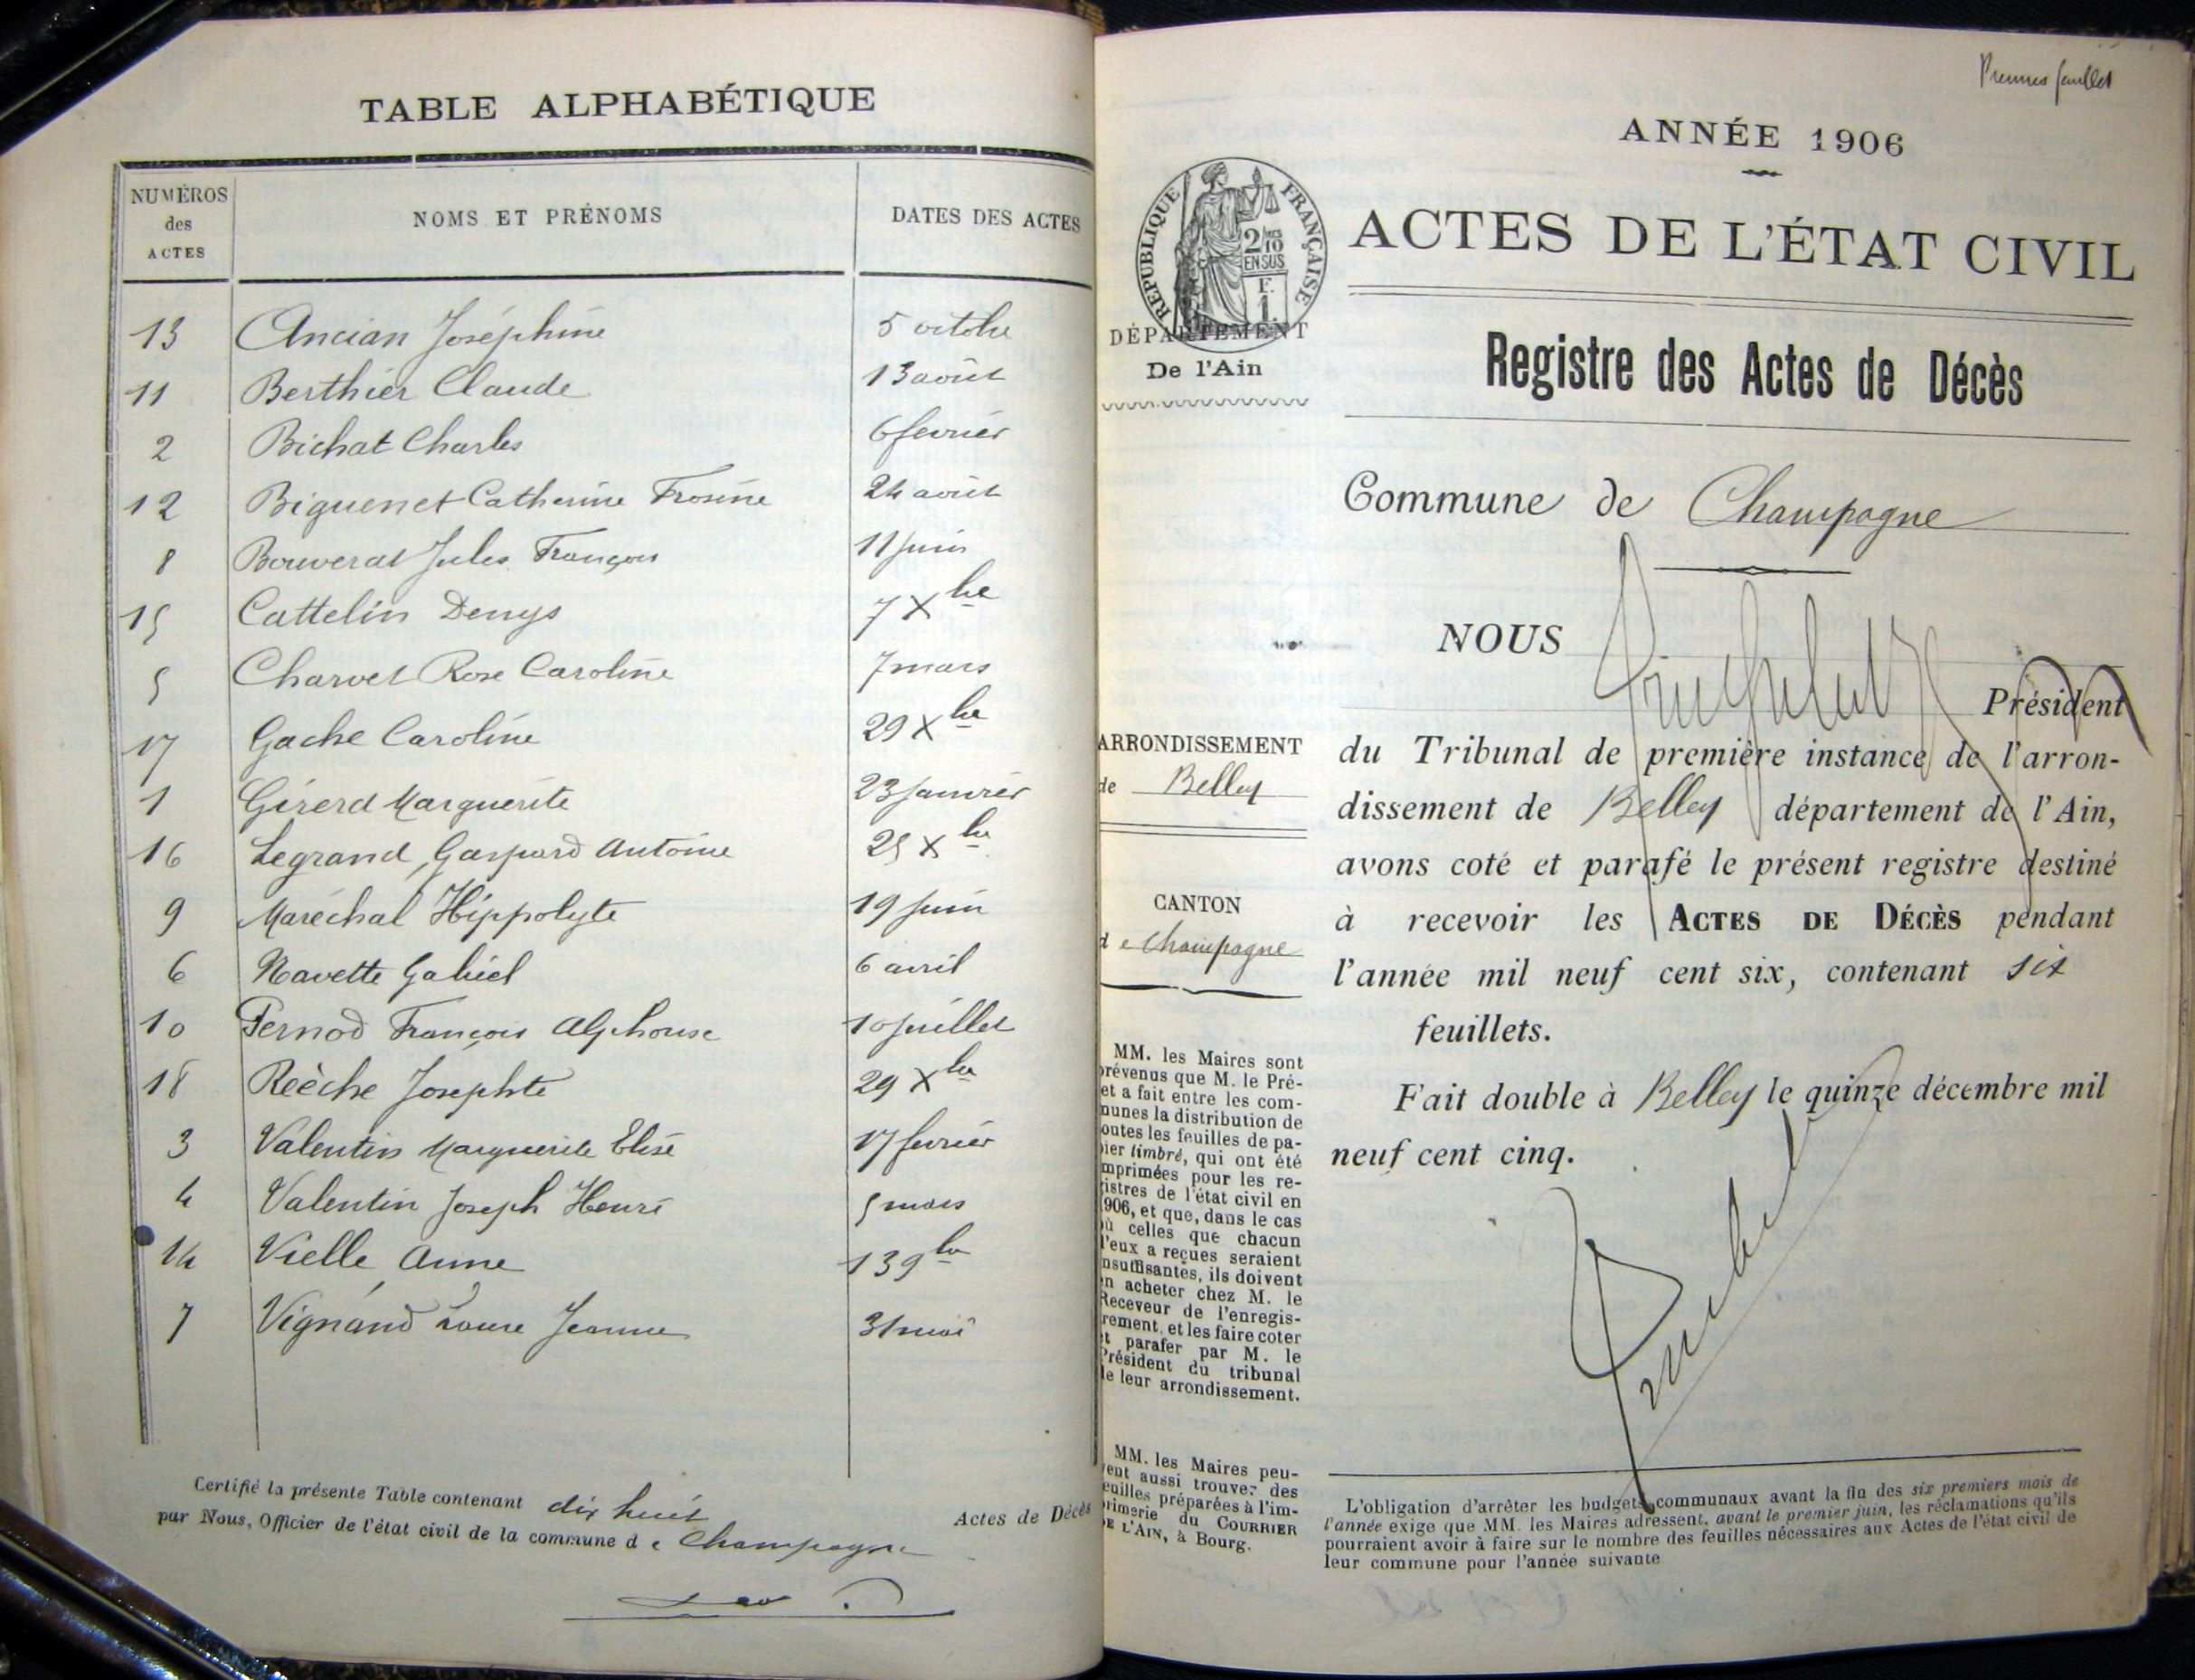 TABLE ALPHABÉTIQUE
NUMÉROS des ACTES NOMS ET PRÉNOMS DATES DES ACTES
13 Ancian Joséphine 5 octobre
11 Berthier Claude 13 août
2 Bichat Charles 6 fevrier
12 Biguenet Catherine Frosine 24 août
8 Bouverat Jules François 11 juin
15 Cattelin Denys 7 Xbre
5 Charvet Rose Caroline 7 mars
17 Gache Caroline 29 Xbre
1 Girerd Marguerite 23 janvier
16 Legrand, Gaspard Antoine 25 Xbre
9 Maréchal Hippolyte 19 juin
6 Navette Gabriel 6 avril
10 Pernod François Alphonse 10 juillet
18 Reèche Josephte 29 Xbre
3 Valentin Marguerite Elise 17 fevrier
4 Valentin Joseph Henri 5 mars
14 Vielle Anne 13 9bre
7 Vignand Laure Jeanne 31 mai
Certifié la présente Table contenant dix huit Actes de Décès
par Nous, Officier de l'état civil de la commune de Champagne
Premier feuillet
ANNÉE 1906
RÉPUBLIQUE FRANÇAISE
2/10 EN SUS
F.
1.
ACTES DE L'ÉTAT CIVIL
DÉPARTEMENT
De l'Ain
Registre des Actes de Décès
Commune de Champagne
NOUS
Président
ARRONDISSEMENT
de Belley
CANTON
de Champagne
du Tribunal de première instance de l'arron-
dissement de Belley département de l'Ain,
avons coté et parafé le présent registre destiné
à recevoir les ACTES DE DÉCÈS pendant
l'année mil neuf cent six, contenant six
feuillets.
Fait double à Belley le quinze décembre mil
neuf cent cinq.
MM. les Maires sont
prévenus que M. le Pré-
et a fait entre les com-
munes la distribution de
outes les feuilles de pa-
pier timbré, qui ont été
mprimées pour les re-
gistres de l'état civil en
1906, et que, dans le cas
où celles que chacun
d'eux a reçues seraient
insuffisantes, ils doivent
en acheter chez M. le
Receveur de l'enregis-
trement, et les faire coter
et parafer par M. le
Président du tribunal
de leur arrondissement.
MM. les Maires peu-
vent aussi trouver des
feuilles préparées à l'im-
primerie du COURRIER
DE L'AIN, à Bourg.
L'obligation d'arrêter les budgets communaux avant la fin des six premiers mois de
l'année exige que MM. les Maires adressent, avant le premier juin, les réclamations qu'ils
pourraient avoir à faire sur le nombre des feuilles nécessaires aux Actes de l'état civil de
leur commune pour l'année suivante